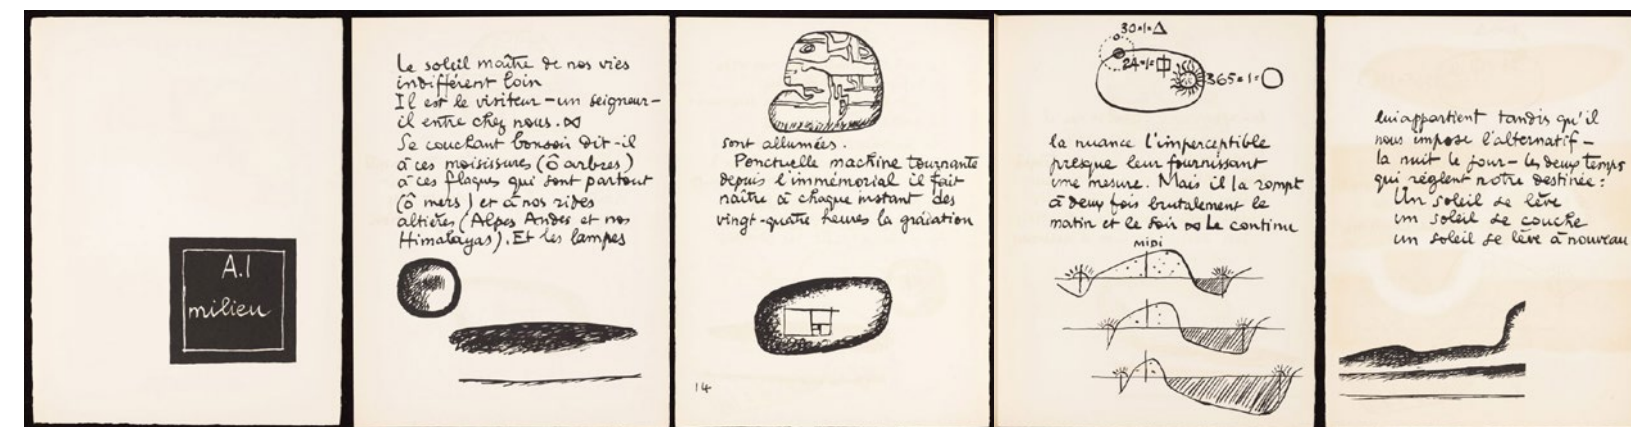 A.1
milieu
Le soleil maître de nos vies
indifférent loin
Il est le visiteur – un seigneur –
il entre chez nous. ∞
Se couchant bonsoir dit-il
à ces moisissures (ô arbres)
à ces flaques qui sont partout
(ô mers) et à nos rides
altières (Alpes Andes et nos
Himalayas). Et les lampes
sont allumées.
Ponctuelle machine tournante
depuis l'immémorial il fait
naître à chaque instant des
vingt-quatre heures la gradation
14
30=1=△
24=1=
365=1=○
la nuance l'imperceptible
presque leur fournissant
une mesure. Mais il la rompt
à deux fois brutalement le
matin et le soir ∞ Le continu
MIDI
lui appartient tandis qu'il
nous impose l'alternatif –
la nuit le jour – les deux temps
qui règlent notre destinée:
Un soleil se lève
un soleil se couche
un soleil se lève à nouveau